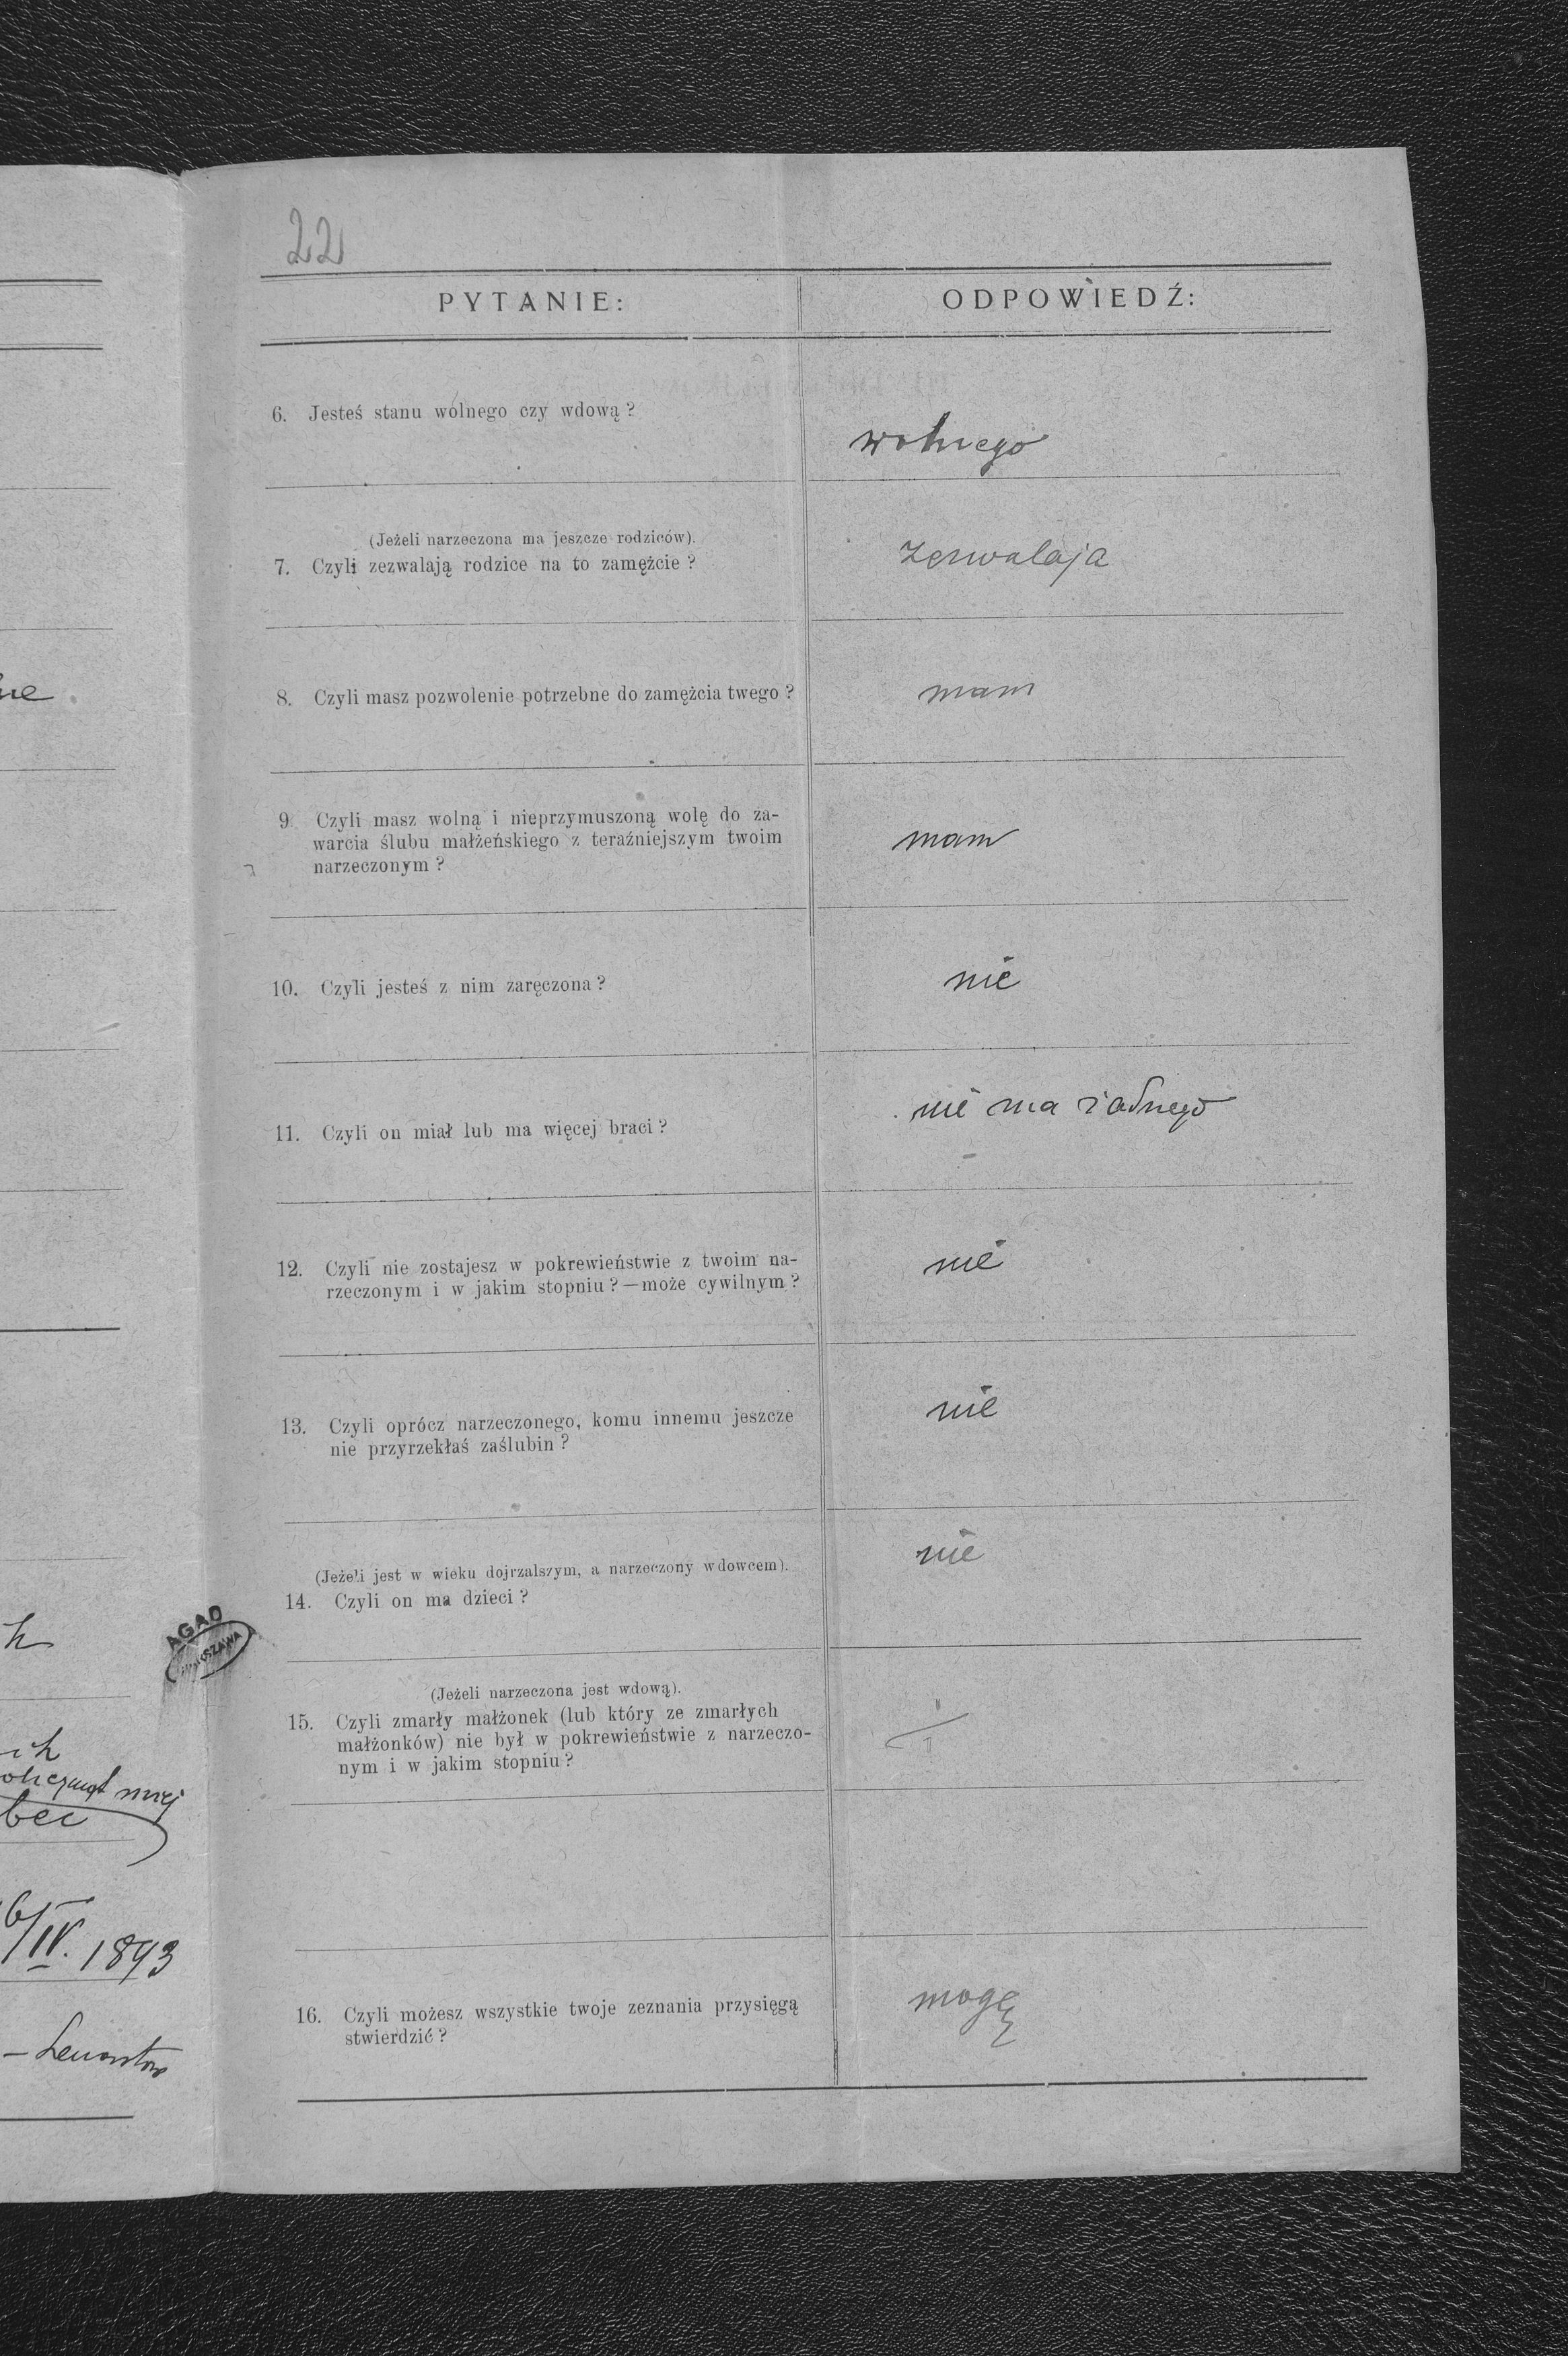 22
PYTANIE:
ODPOWIEDŹ:
6. Jesteś stanu wolnego czy wdową?
wolnego
(Jeżeli narzeczona ma jeszcze rodziców).
7. Czyli zezwalają rodzice na to zamężcie?
zezwalaja
8. Czyli masz pozwolenie potrzebne do zamężcia twego?
mam
9. Czyli masz wolną i nieprzymuszoną wolę do za-
warcia ślubu małżeńskiego z teraźniejszym twoim
narzeczonym?
mam
10. Czyli jesteś z nim zaręczona?
nie
11. Czyli on miał lub ma więcej braci?
nie ma żadnego
12. Czyli nie zostajesz w pokrewieństwie z twoim na-
rzeczonym i w jakim stopniu?—może cywilnym?
nie
13. Czyli oprócz narzeczonego, komu innemu jeszcze
nie przyrzekłaś zaślubin?
nie
(Jeżeli jest w wieku dojrzalszym, a narzeczony wdowcem).
14. Czyli on ma dzieci?
nie
(Jeżeli narzeczona jest wdową).
15. Czyli zmarły małżonek (lub który ze zmarłych
małżonków) nie był w pokrewieństwie z narzeczo-
nym i w jakim stopniu?
16. Czyli możesz wszystkie twoje zeznania przysięgą
stwierdzić?
mogę
AGAD
WARSZAWA
6/IV. 1893